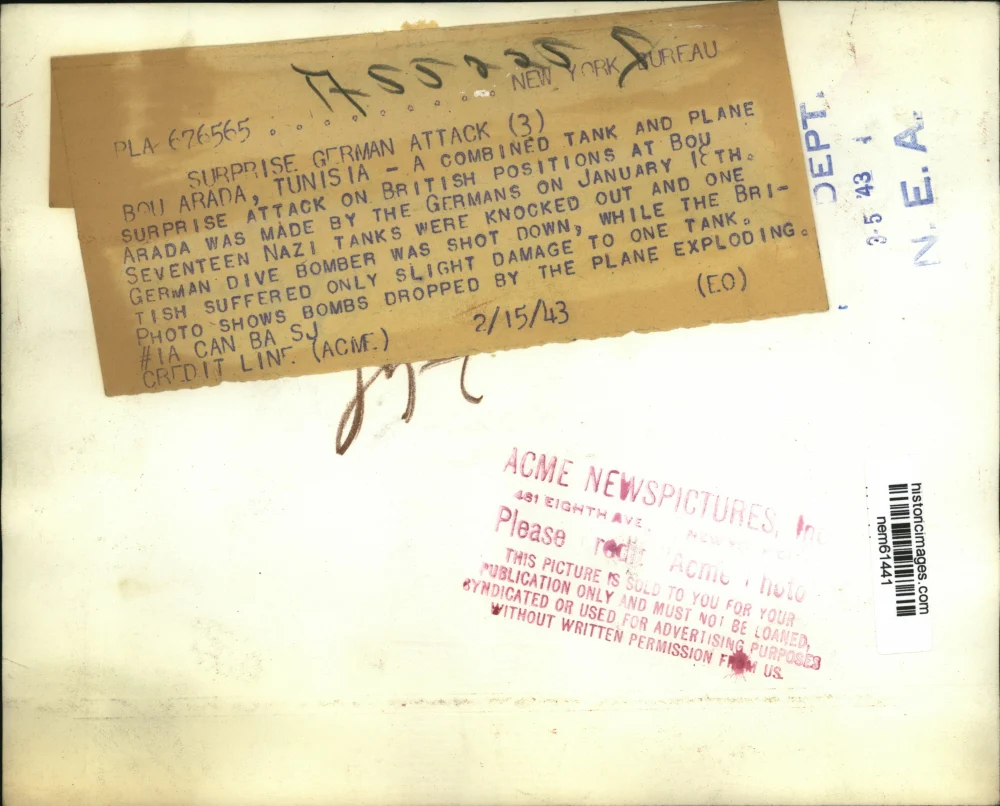 755225 8
PLA 676565 . . . . . . . . . NEW YORK BUREAU
SURPRISE GERMAN ATTACK (3)
BOU ARADA, TUNISIA - A COMBINED TANK AND PLANE
SURPRISE ATTACK ON BRITISH POSITIONS AT BOU
ARADA WAS MADE BY THE GERMANS ON JANUARY 18TH.
SEVENTEEN NAZI TANKS WERE KNOCKED OUT AND ONE
GERMAN DIVE BOMBER WAS SHOT DOWN, WHILE THE BRI-
TISH SUFFERED ONLY SLIGHT DAMAGE TO ONE TANK.
PHOTO SHOWS BOMBS DROPPED BY THE PLANE EXPLODING.
#1A CAN BA SJ 2/15/43 (EO)
CREDIT LINE (ACME)
DEPT.
3-5 '43
N.E.A.
ACME NEWSPICTURES, Inc
461 EIGHTH AVE., NEW YORK CITY
Please credit "Acme Photo
THIS PICTURE IS SOLD TO YOU FOR YOUR
PUBLICATION ONLY AND MUST NOT BE LOANED,
SYNDICATED OR USED FOR ADVERTISING PURPOSES
WITHOUT WRITTEN PERMISSION FROM US.
historicimages.com
nem61441